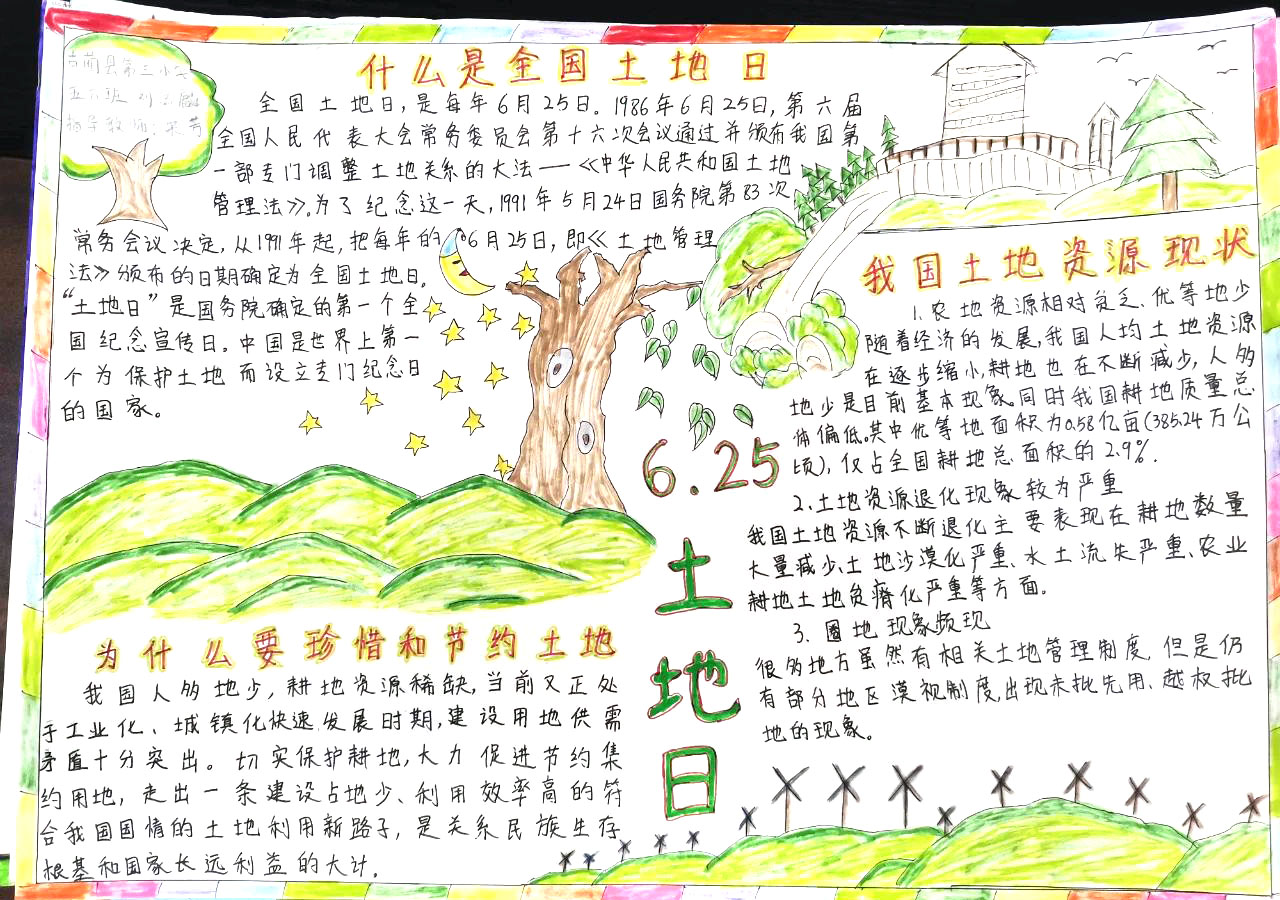 县第三小学
指导教师:
什么是全国土地日
全国土地日,是每年6月25日。1986年6月25日,第六届
全国人民代表大会常务委员会第十六次会议通过并颁布我国第
一部专门调整土地关系的大法——《中华人民共和国土地
管理法》。为了纪念这一天,1991年5月24日国务院第83次
常务会议决定,从1991年起,把每年的6月25日,即《土地管理
法》颁布的日期确定为全国土地日。
“土地日”是国务院确定的第一个全
国纪念宣传日。中国是世界上第一
个为保护土地而设立专门纪念日
的国家。
我国土地资源现状
1.农地资源相对贫乏、优等地少
随着经济的发展,我国人均土地资源
在逐步缩小,耕地也在不断减少,人多
地少是目前基本现象。同时我国耕地质量总
体偏低。其中优等地面积为0.58亿亩(385.24万公
顷),仅占全国耕地总面积的2.9%.
2.土地资源退化现象较为严重
我国土地资源不断退化主要表现在耕地数量
大量减少、土地沙漠化严重、水土流失严重、农业
耕地土地负瘠化严重等方面。
3.圈地现象频现
很多地方虽然有相关土地管理制度,但是仍
有部分地区漠视制度,出现未批先用、越权批
地的现象。
6.25
土
地
日
为什么要珍惜和节约土地
我国人多地少,耕地资源稀缺,当前又正处
于工业化、城镇化快速发展时期,建设用地供需
矛盾十分突出。切实保护耕地,大力促进节约集
约用地,走出一条建设占地少、利用效率高的符
合我国国情的土地利用新路子,是关系民族生存
根基和国家长远利益的大计.